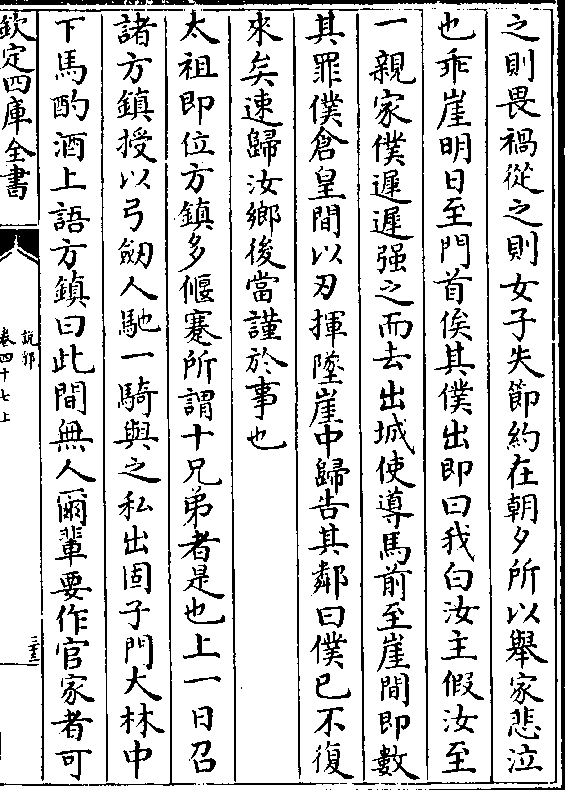 之則畏禍從之則女子失節約在朝夕所以舉家悲泣
也乖崖明日至門首俟其僕出即曰我白汝主假汝至
一親家僕遲遲强之而去出城使導馬前至崖間即數
其罪僕倉皇間以刃揮墜崖中歸告其鄰曰僕已不復
來矣速歸汝鄉後當謹於事也
太祖即位方鎮多偃蹇所謂十兄弟者是也上一日召
諸方鎮授以弓劒人馳一騎與之私出固子門大林中
下馬酌酒上語方鎮曰此間無人爾輩要作官家者可
欽定四庫全書
說郛
卷四十七上
三十三